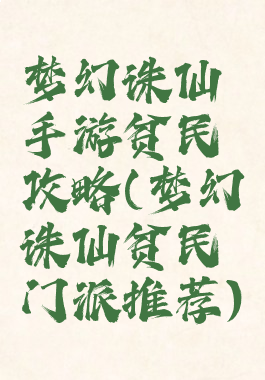 梦幻诛仙
手游贫民
攻略(梦幻
诛仙贫民
门派推荐)